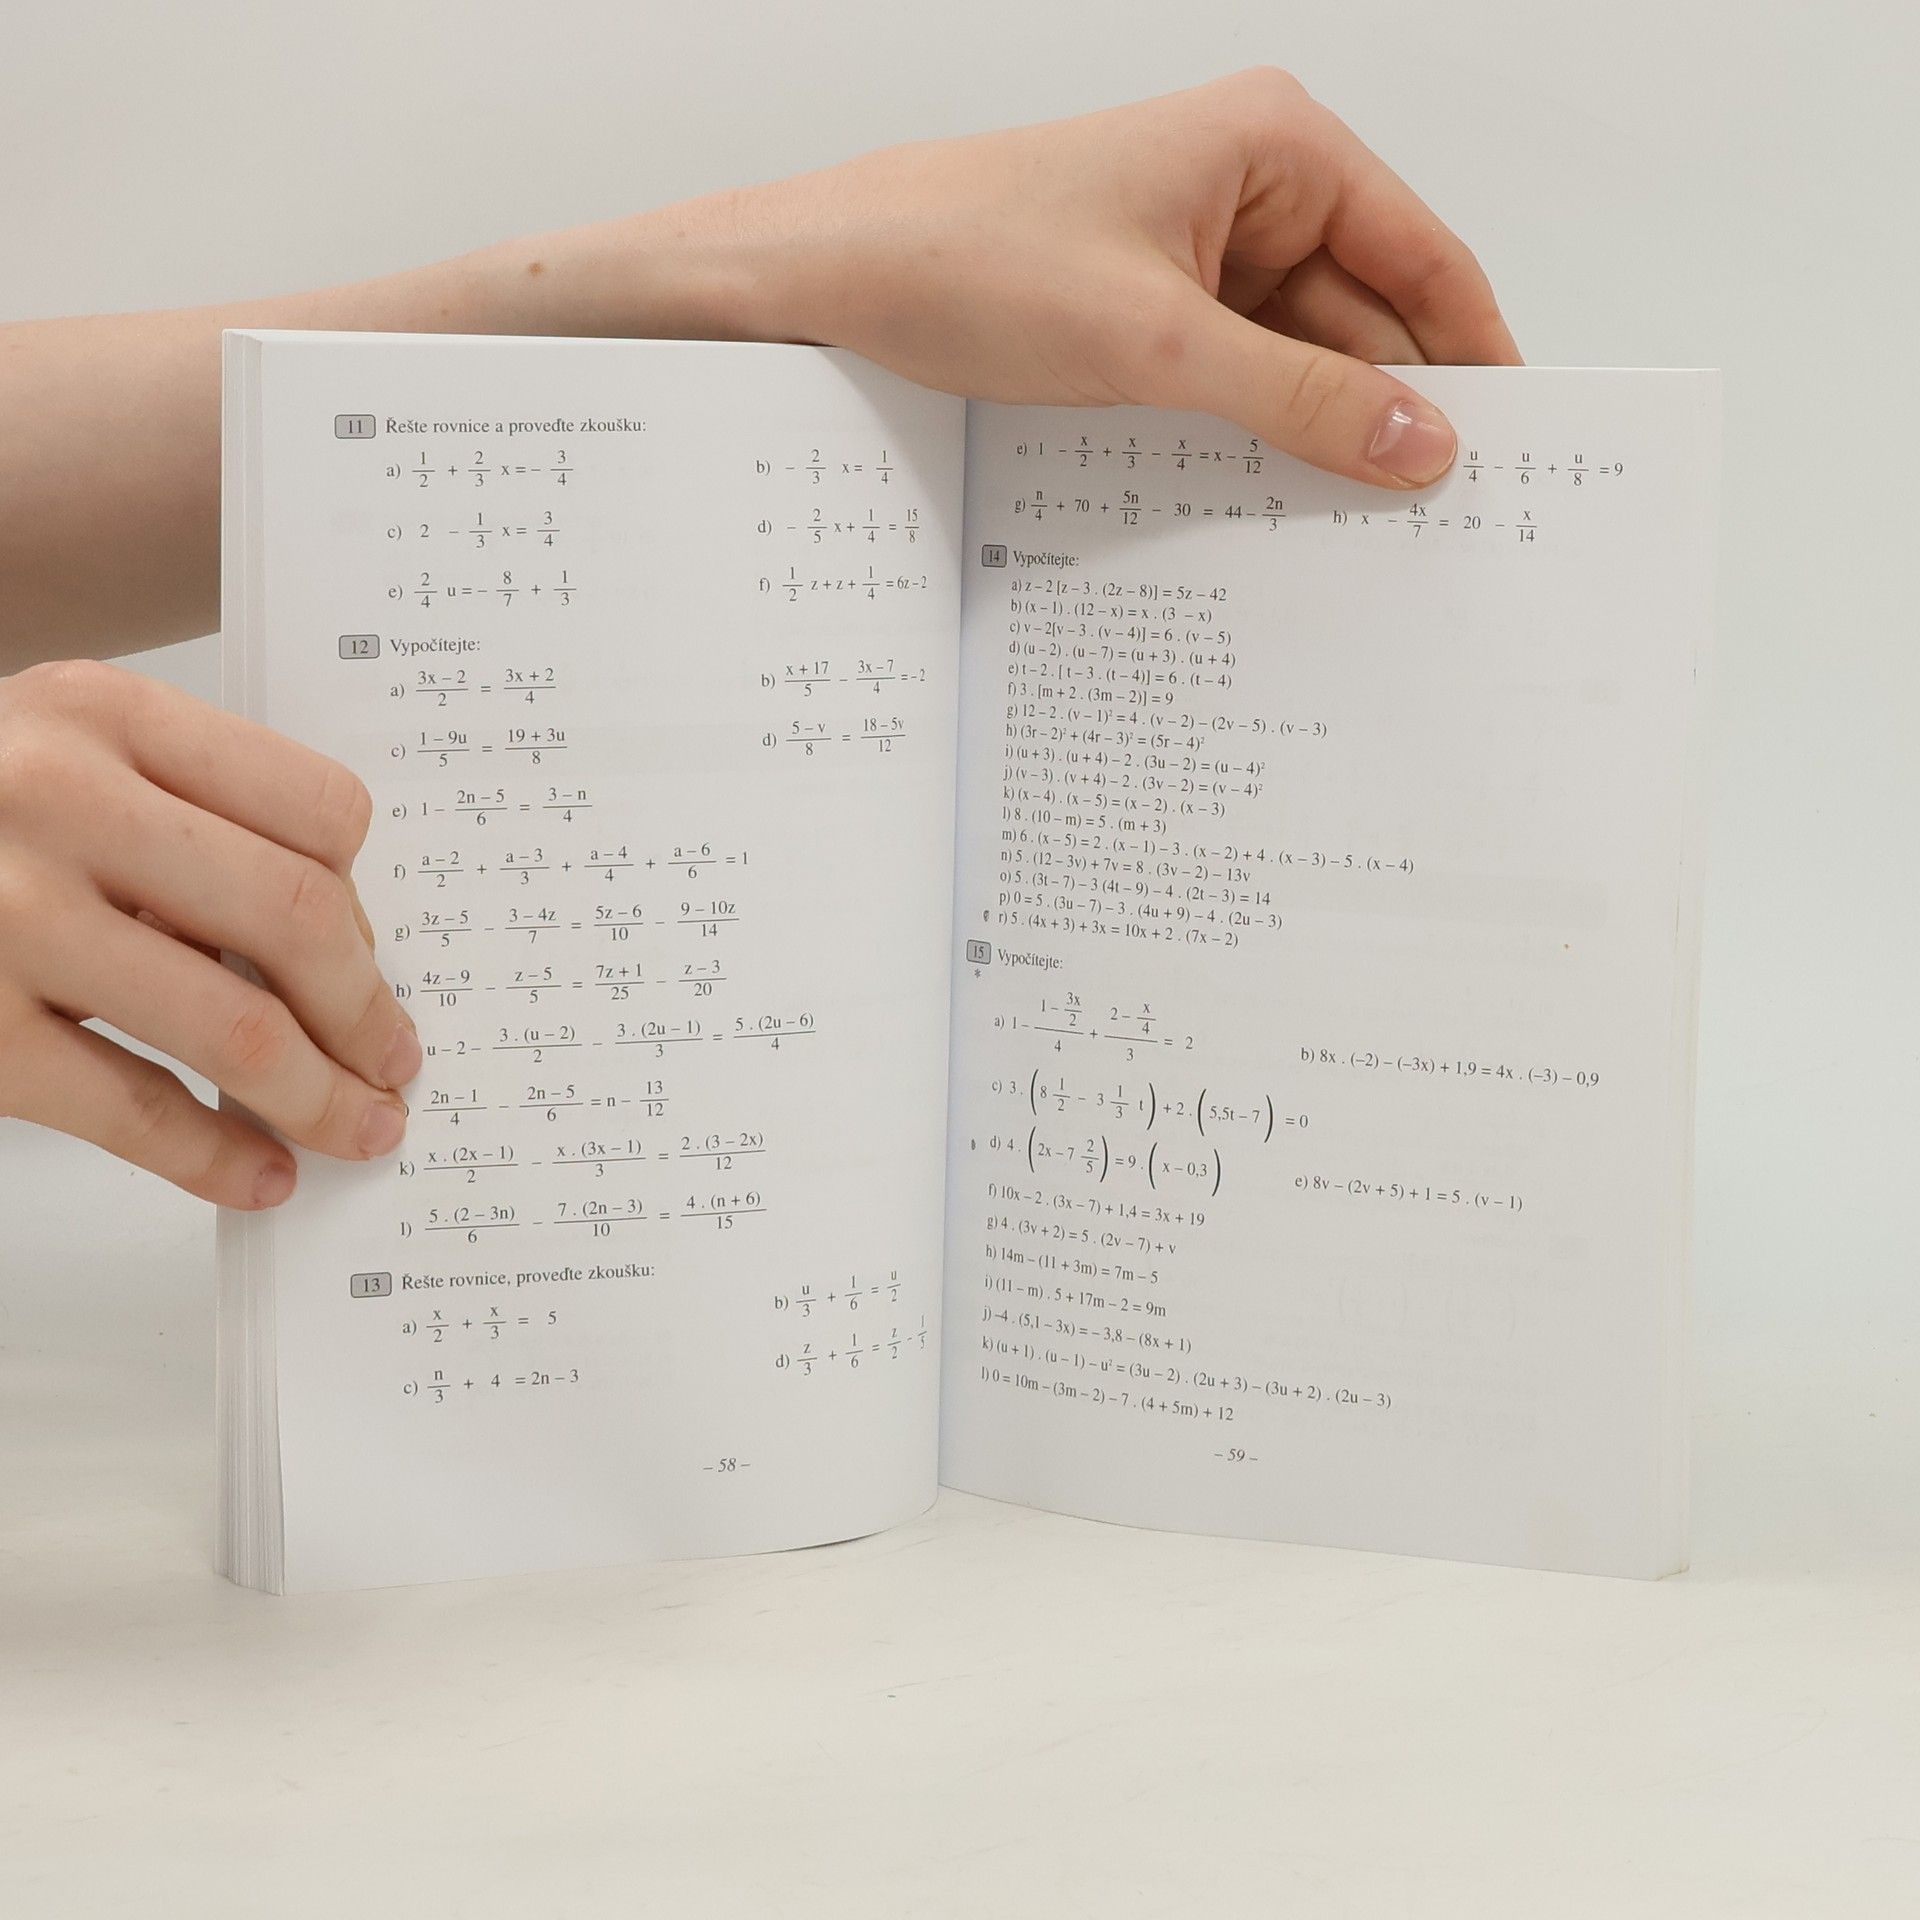 11 Řešte rovnice a proveďte zkoušku:
a) 1/2 + 2/3 x = – 3/4
b) – 2/3 x = 1/4
c) 2 – 1/3 x = 3/4
d) – 2/5 x + 1/4 = 15/8
e) 2/4 u = – 8/7 + 1/3
f) 1/2 z + z + 1/4 = 6z – 2
12 Vypočítejte:
a) 3x – 2/2 = 3x + 2/4
b) x + 17/5 – 3x – 7/4 = – 2
c) 1 – 9u/5 = 19 + 3u/8
d) 5 – v/8 = 18 – 5v/12
e) 1 – 2n – 5/6 = 3 – n/4
f) a – 2/2 + a – 3/3 + a – 4/4 + a – 6/6 = 1
g) 3z – 5/5 – 3 – 4z/7 = 5z – 6/10 – 9 – 10z/14
h) 4z – 9/10 – z – 5/5 = 7z + 1/25 – z – 3/20
u – 2 – 3 . (u – 2)/2 – 3 . (2u – 1)/3 = 5 . (2u – 6)/4
) 2n – 1/4 – 2n – 5/6 = n – 13/12
k) x . (2x – 1)/2 – x . (3x – 1)/3 = 2 . (3 – 2x)/12
l) 5 . (2 – 3n)/6 – 7 . (2n – 3)/10 = 4 . (n + 6)/15
13 Řešte rovnice, proveďte zkoušku:
a) x/2 + x/3 = 5
b) u/3 + 1/6 = u/2
c) n/3 + 4 = 2n – 3
d) z/3 + 1/6 = z/2 – 1/3
– 58 –
e) 1 – x/2 + x/3 – x/4 = x – 5/12
u/4 – u/6 + u/8 = 9
g) n/4 + 70 + 5n/12 – 30 = 44 – 2n/3
h) x – 4x/7 = 20 – x/14
14 Vypočítejte:
a) z – 2 [z – 3 . (2z – 8)] = 5z – 42
b) (x – 1) . (12 – x) = x . (3 – x)
c) v – 2[v – 3 . (v – 4)] = 6 . (v – 5)
d) (u – 2) . (u – 7) = (u + 3) . (u + 4)
e) t – 2 . [ t – 3 . (t – 4)] = 6 . (t – 4)
f) 3 . [m + 2 . (3m – 2)] = 9
g) 12 – 2 . (v – 1)² = 4 . (v – 2) – (2v – 5) . (v – 3)
h) (3r – 2)² + (4r – 3)² = (5r – 4)²
i) (u + 3) . (u + 4) – 2 . (3u – 2) = (u – 4)²
j) (v – 3) . (v + 4) – 2 . (3v – 2) = (v – 4)²
k) (x – 4) . (x – 5) = (x – 2) . (x – 3)
l) 8 . (10 – m) = 5 . (m + 3)
m) 6 . (x – 5) = 2 . (x – 1) – 3 . (x – 2) + 4 . (x – 3) – 5 . (x – 4)
n) 5 . (12 – 3v) + 7v = 8 . (3v – 2) – 13v
o) 5 . (3t – 7) – 3 (4t – 9) – 4 . (2t – 3) = 14
p) 0 = 5 . (3u – 7) – 3 . (4u + 9) – 4 . (2u – 3)
r) 5 . (4x + 3) + 3x = 10x + 2 . (7x – 2)
15 Vypočítejte:
*
a) 1 – (1 – 3x/2)/4 + (2 – x/4)/3 = 2
b) 8x . (–2) – (–3x) + 1,9 = 4x . (–3) – 0,9
c) 3 . (8 1/2 – 3 1/3 t) + 2 . (5,5t – 7) = 0
d) 4 . (2x – 7 2/5) = 9 . (x – 0,3)
e) 8v – (2v + 5) + 1 = 5 . (v – 1)
f) 10x – 2 . (3x – 7) + 1,4 = 3x + 19
g) 4 . (3v + 2) = 5 . (2v – 7) + v
h) 14m – (11 + 3m) = 7m – 5
i) (11 – m) . 5 + 17m – 2 = 9m
j) –4 . (5,1 – 3x) = – 3,8 – (8x + 1)
k) (u + 1) . (u – 1) – u² = (3u – 2) . (2u + 3) – (3u + 2) . (2u – 3)
l) 0 = 10m – (3m – 2) – 7 . (4 + 5m) + 12
– 59 –